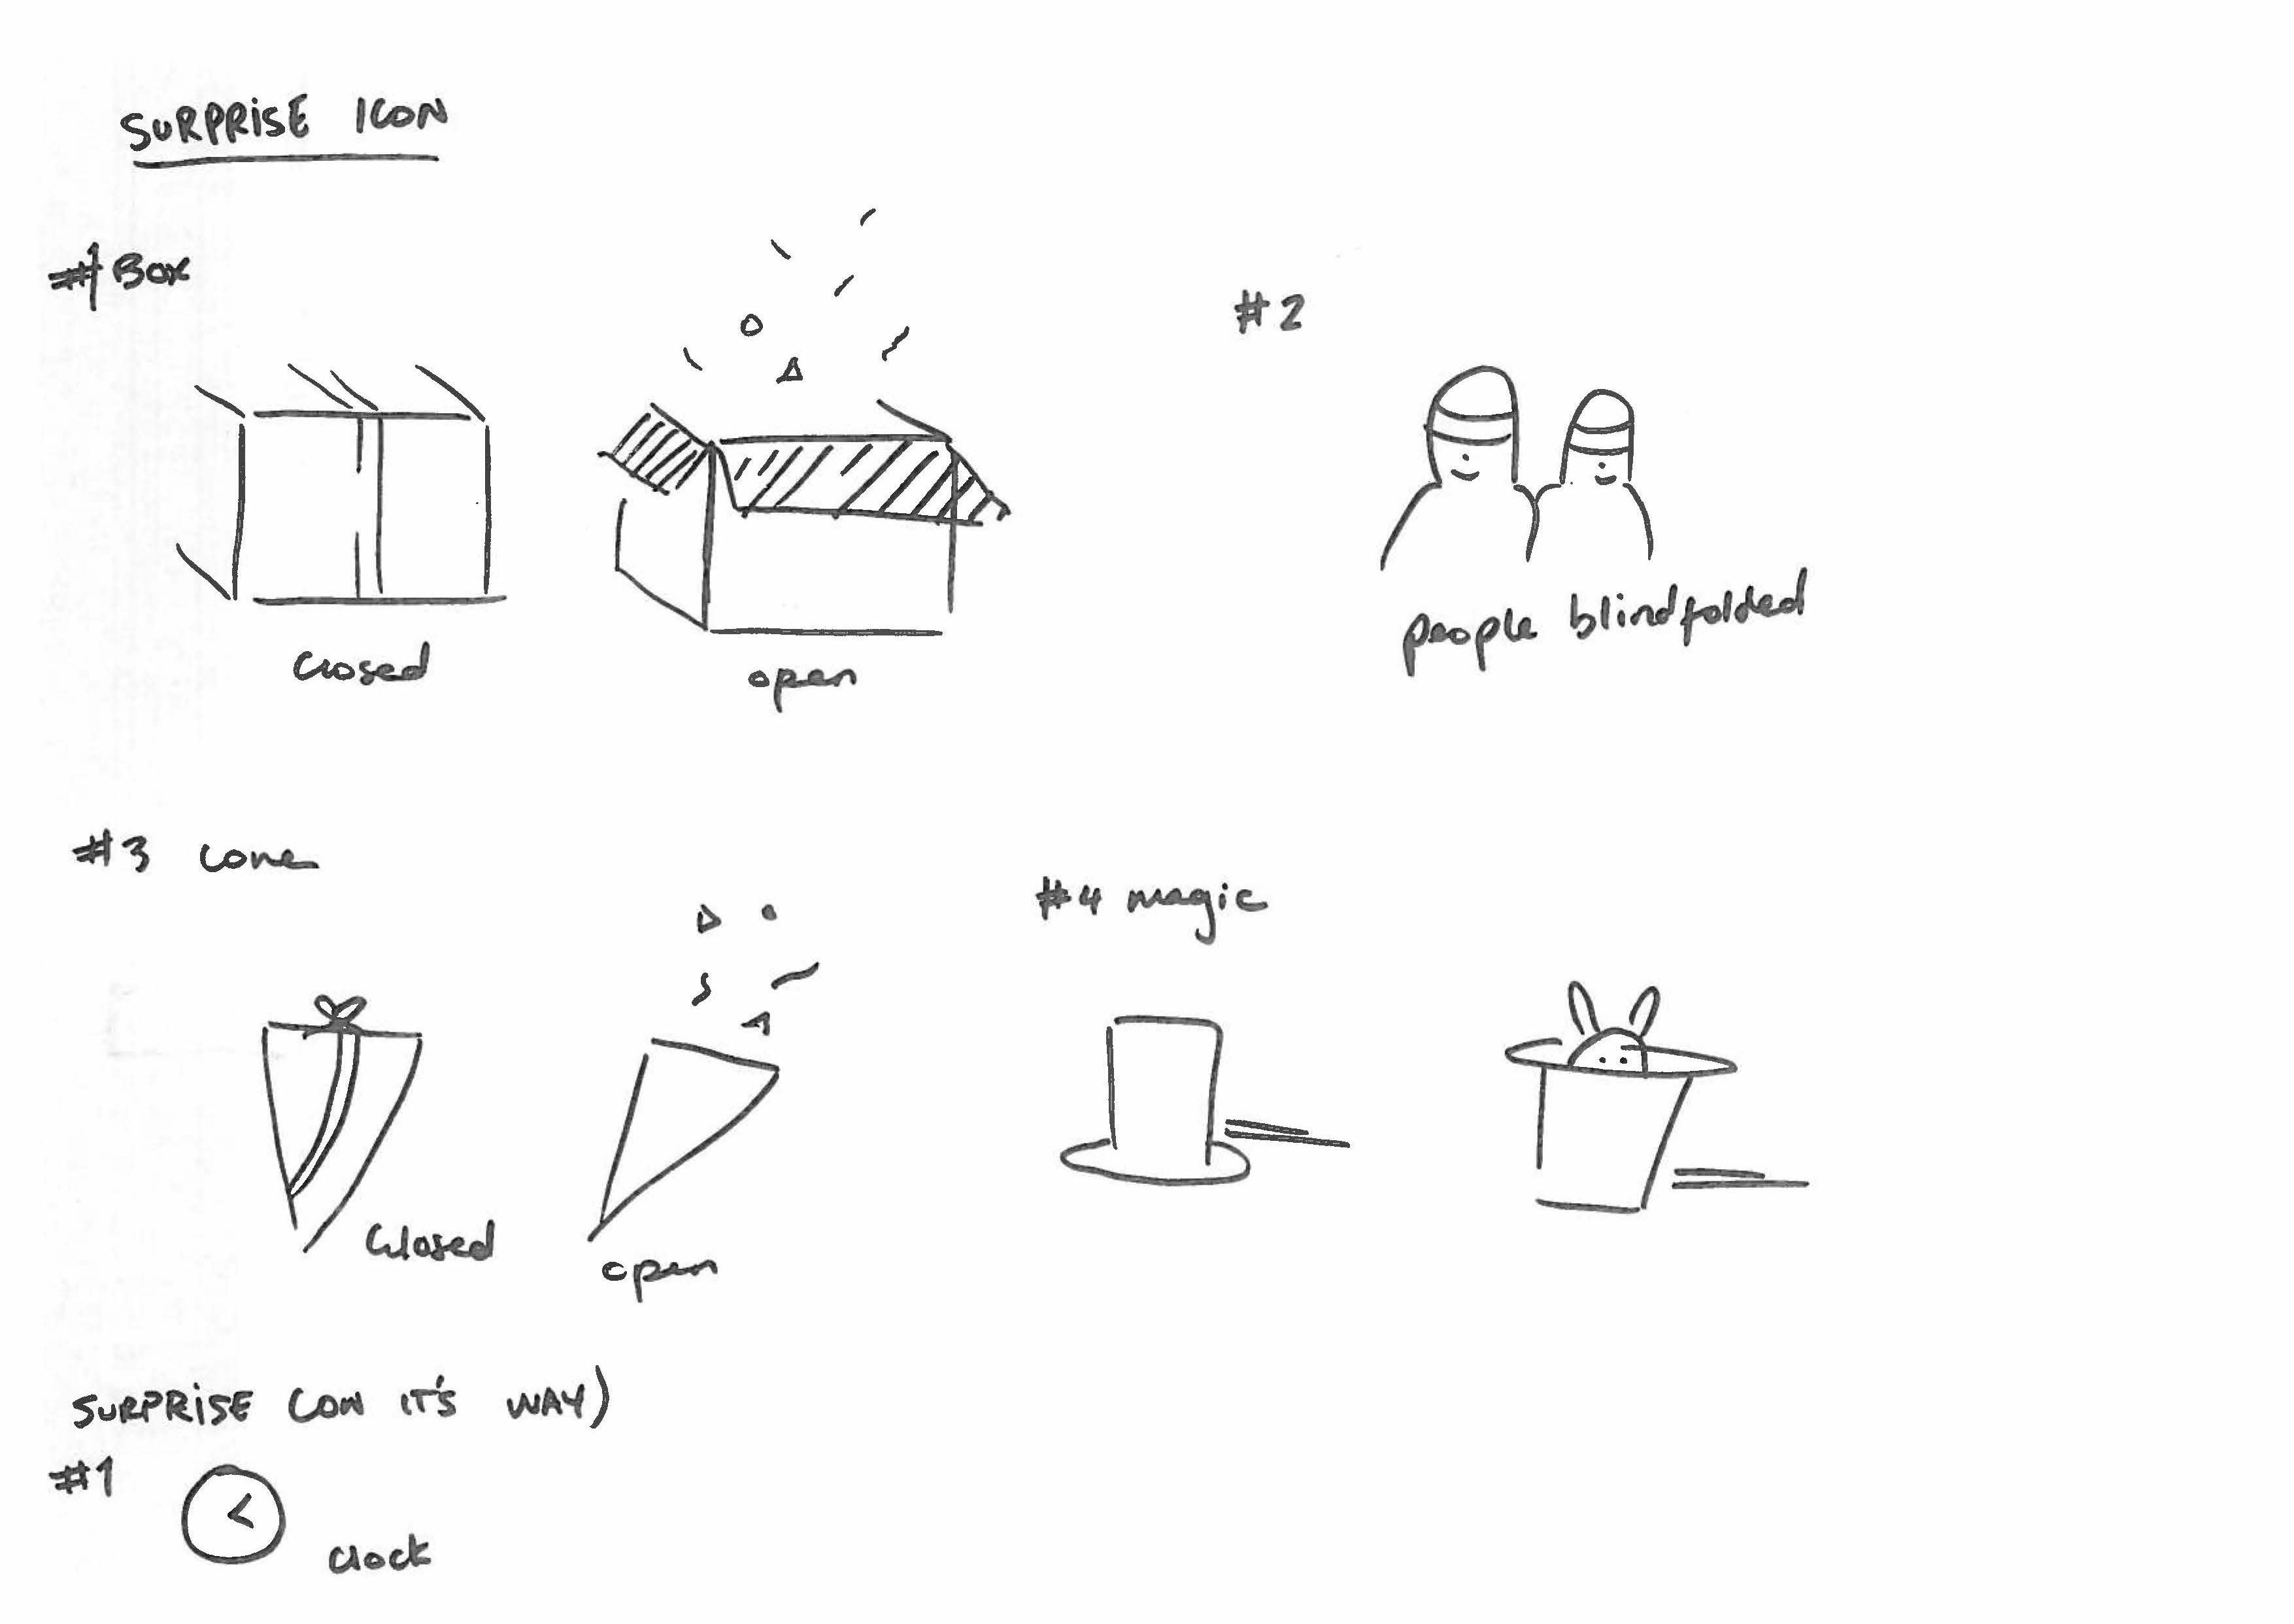 SURPRISE ICON
#1 Box
#2
closed
open
people blindfolded
#3 cone
#4 magic
closed
open
SURPRISE (ON IT'S WAY)
#1
clock